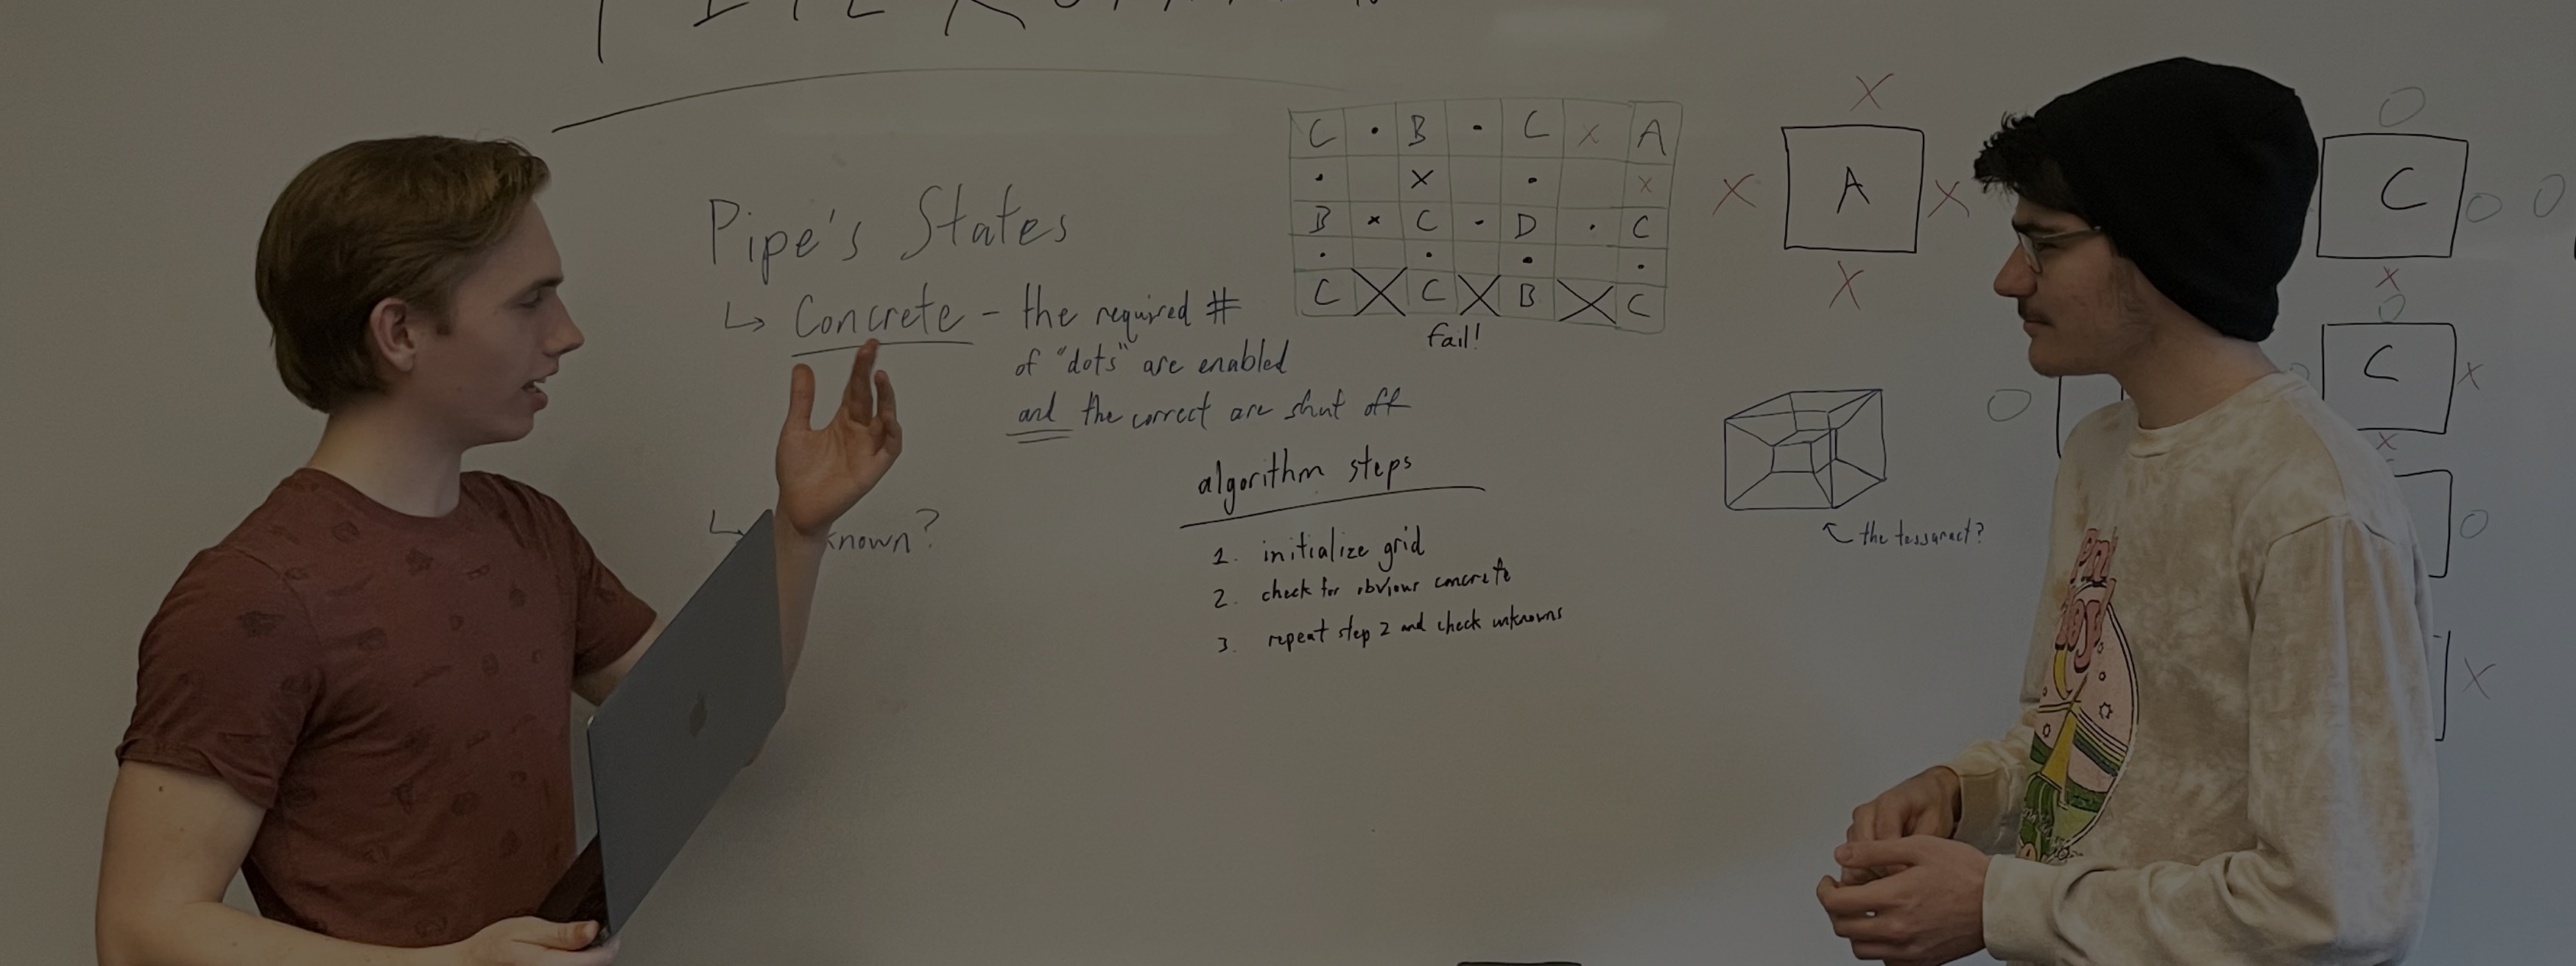 Pipe's States
↳ Concrete - the required #
of "dots" are enabled
and the correct are shut off
↳ known?
C • B • C x A
• x • x
B x C - D • C
• • • •
C X C X B X C
fail!
algorithm steps
1. initialize grid
2. check for obvious concrete
3. repeat step 2 and check unknowns
X
X A X
X
the tessaract?
O
C O O
X
O
C X
X
O
O
X